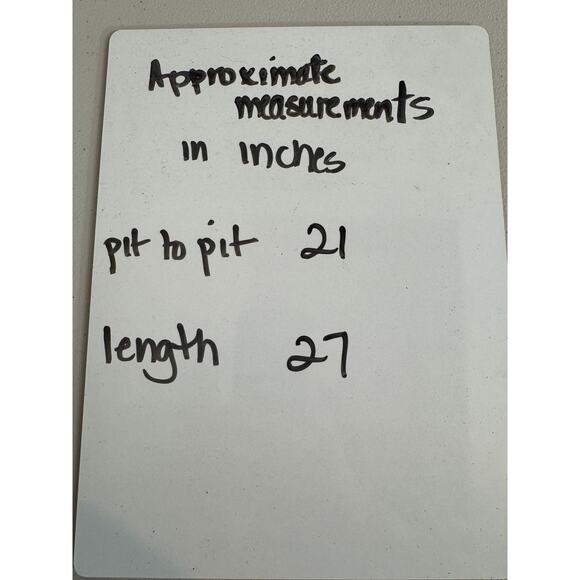 Approximate
measurements
in inches
pit to pit 21
length 27